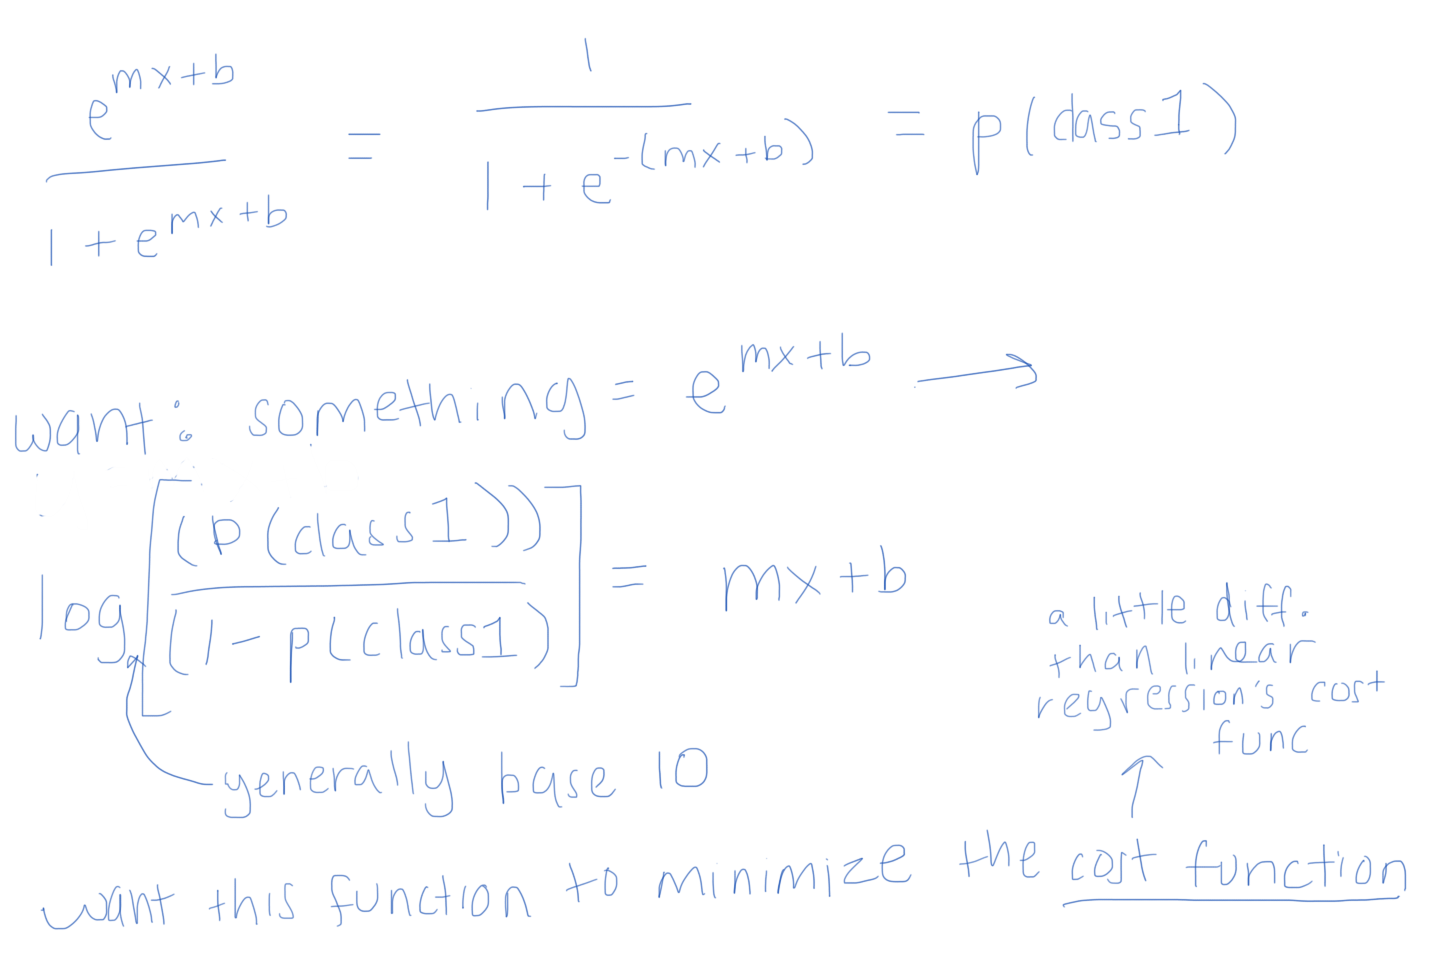 e^{mx+b} / 1 + e^{mx+b} = 1 / 1 + e^{-(mx+b)} = p(class1)
want: something = e^{mx+b} →
log [(p(class1)) / (1 - p(class1)] = mx+b
generally base 10
a little diff.
than linear
regression's cost
func
want this function to minimize the cost function